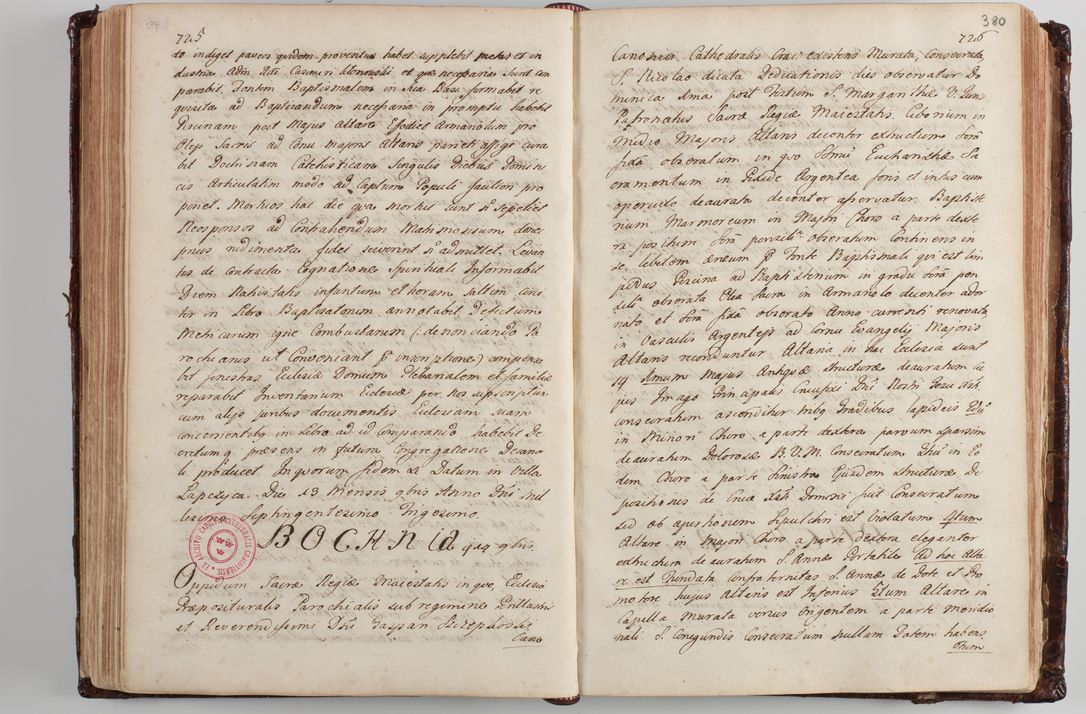 725
to indiget pauca quidem proventus habet supplebit melius et in
dustria Adm Rdi Casimiri et quæ necessaria sunt com
parabit. Fontem Baptismalem in sua Basi firmabit re
quisita ad Baptisandum necessaria in promptu habebit
Piscinam post Majus Altare Efodiet Armariolum pro
Oleis Sacris ad Cornu majoris Altaris parieti affigi cura
bit Doctrinam Catechisticam Singulis Diebus Domini
cis Articulatim modo ad Captum Populi facilem pro
ponet. Mortuos hac die qua mortui sunt non sepeliet
Neosponsos ad Contrahendum Matrimonium donec
prius rudimenta fidei sciverint non admittet. Levan
tes de Contracta Cognatione Spirituali Informabit
Diem Nativitatis infantum et horam saltem circi
ter in Libro Baptisatorum annotabit, Defectum
Metricarum igne Combustarum (: denonciando Pa
rochianis ut Conveniant p inscriptione) compensa
bit fenestras Ecclesiæ Domum Plebanalem et familiæ
reparabit Inventarium Ecclesiæ per nos subscriptum
cum alijs juribus documentis Ecclesiam suam
concernentibq in Libro ad id comparando habebit De
cretumq præsens in futura Congregatione Decana
li producet. In quorum fidem &c Datum in Villa
Lapczyca. Die 13 Mensis 9bris Anno Dni Mil
lesimo Septingentesimo Trigesimo.
BOCHNIA 9bris
Oppidum Sacræ Regiæ Maiestatis in quo, Ecclesia
Præposituralis Parochialis sub regimine Perillustris
et Reverendissimi Dni Gaspari
Cano
EX ARCHIVO CAPITULI CATHEDRALIS CRACOVIENSIS
380
726
Canonici Cathedralis Crac. existens Murata, Consecrata,
S. Nicolao dicata Dedicationis dies observatur Do
minica 1ma post Festum S. Margarithæ V.
Patronatus Sacræ Regiæ Maiestatis. Ciborium in
Medio Majoris Altaris decenter exstructum Serâ
fixâ obseratum in quo Ssmū Eucharistiæ Sa
cramentum in Pixide Argentea foris et intus cum
operculo deaurata decenter asservatur. Baptiste
rium Marmoreum in Majori Choro a parte dexte
ra positum Serâ pensili obseratum Continens in
se lebetem æneum p Fonte Baptismali qui est lim
pidus Piscina ad Baptisterium in gradu Serâ pen
sili obserata Olea Sacra in Armariolo decenter ador
nato et Serâ fixâ obserato Anno currenti renovata,
in Vasculis Argenteis ad Cornu Evangelij Majoris
Altaris reconduntur. Altaria in hac Ecclesia sunt
14 1mum Majus Antiquæ structuræ deauratum cu
jus Imago Principalis Crucifixi Dni Nostri Jesu Chti
consecratum ascenditur tribq Gradibus lapideis 2dū
in Minori Choro a parte dextera parvum sparsim
deauratum Dolorosæ B.V.M. Consecratum 3tiū in eo
dem Choro a parte sinistra Ejusdem structuræ De
positionis de Cruce Xsti Domini fuit Consecratum
sed ob apertionem Sepulchri est Violatum 4tum
Altare in Majori Choro a parte Dextera eleganter
extructum deauratum S. Annæ Portatile Ad hoc Alta
re est Fundata Confraternitas S. Annæ de Dote et Pro
motore hujus Altaris est Inferius 5tum Altare in
Capella Murata versus Orientem a parte meridio
nali S. Cunegundis Consecratum nullam Dotem habens.